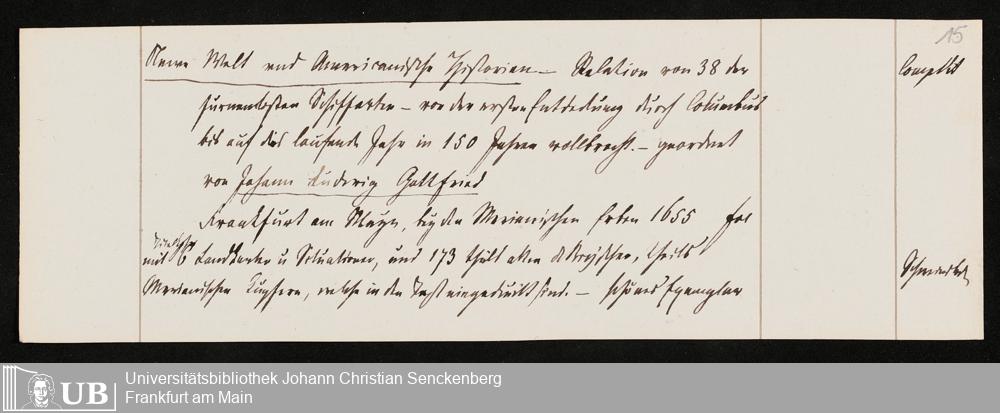 15
Neue Welt und Americanische Historien – Relation von 38 der complet
fürnembsten Schiffarten – von der ersten Entdeckung durch Columbus
bis auf dies laufende Jahr in 150 Jahren vollbracht. – geordnet
von Johann Ludwig Gottfried
Frankfurt am Mayn, bey den Merianischen Erben 1655 fol
mit 6 Landkarten u Situationen, und 173 theils alten de Bryschen, theils
Merianischen Kupfern, welche in den Text eingedruckt sind. – schönes Exemplar
UB
Universitätsbibliothek Johann Christian Senckenberg
Frankfurt am Main